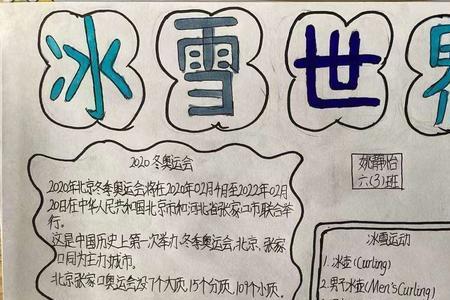 冰雪世界
2020 冬奥运会
姚静怡
六(3)班
2020年北京冬季奥运会将在2020年02月4日至2022年02月
20日在中华人民共和国北京市和河北省张家口市联合举
行。
这是中国历史上第一次举办冬季奥运会,北京、张家
口同为主办城市。
北京张家口奥运会设7个大项,15个分项,109个小项。
冰雪运动
1. 冰壶(Curling)
2. 男子冰壶(Men's Curling)